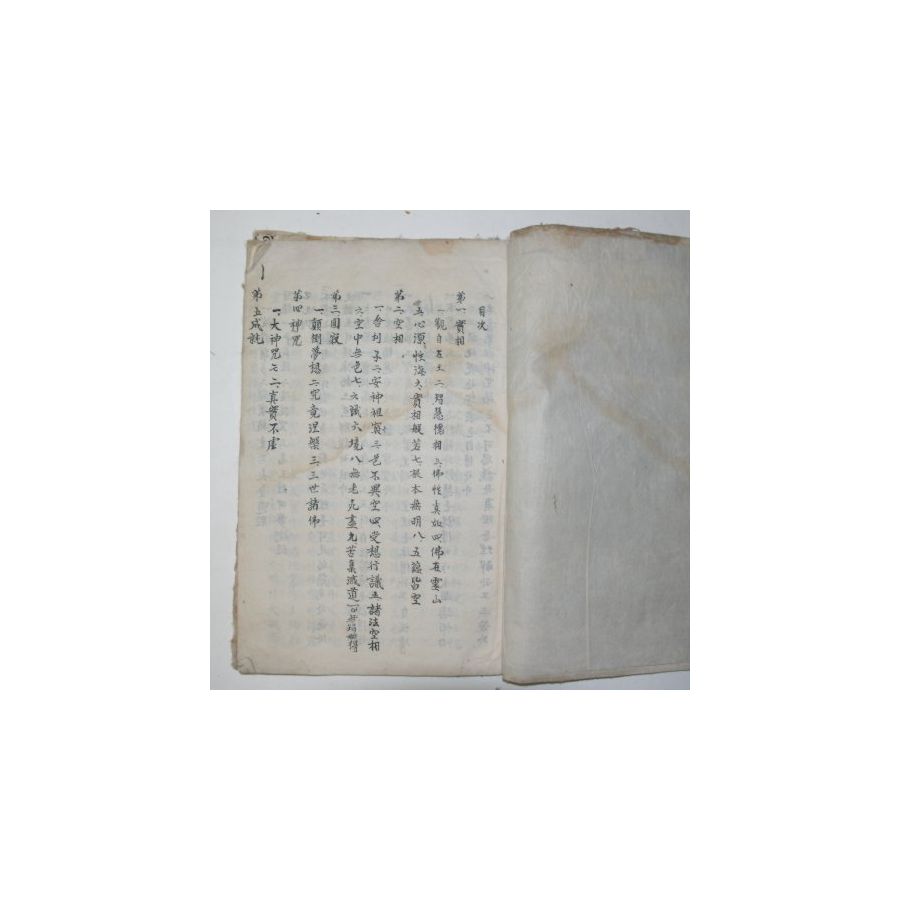 目次
第一、實相
一、觀自在王 二、智慧德相 三、佛性真如 四、佛在靈山
五、心源性海 六、實相般若 七、根本無明 八、五蘊皆空
第二、空相
一、舍利子 二、安神祖竅 三、色不異空 四、受想行議 五、諸法空相
六、空中無色 七、六識六境 八、無老死盡 九、苦集滅道 十、無智無得
第三圓寂
一、顛倒夢想 二、究竟涅槃 三、三世諸佛
第四神咒
一、大神咒 二、真實不虛
第五成就